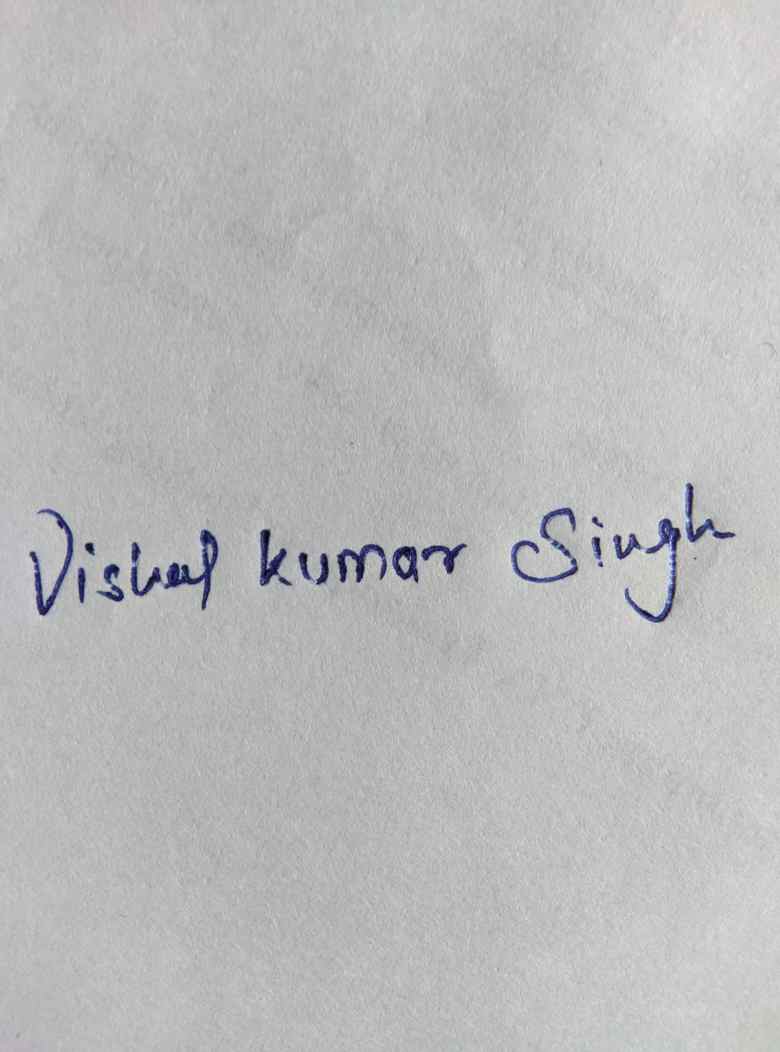 Vishal kumar Singh